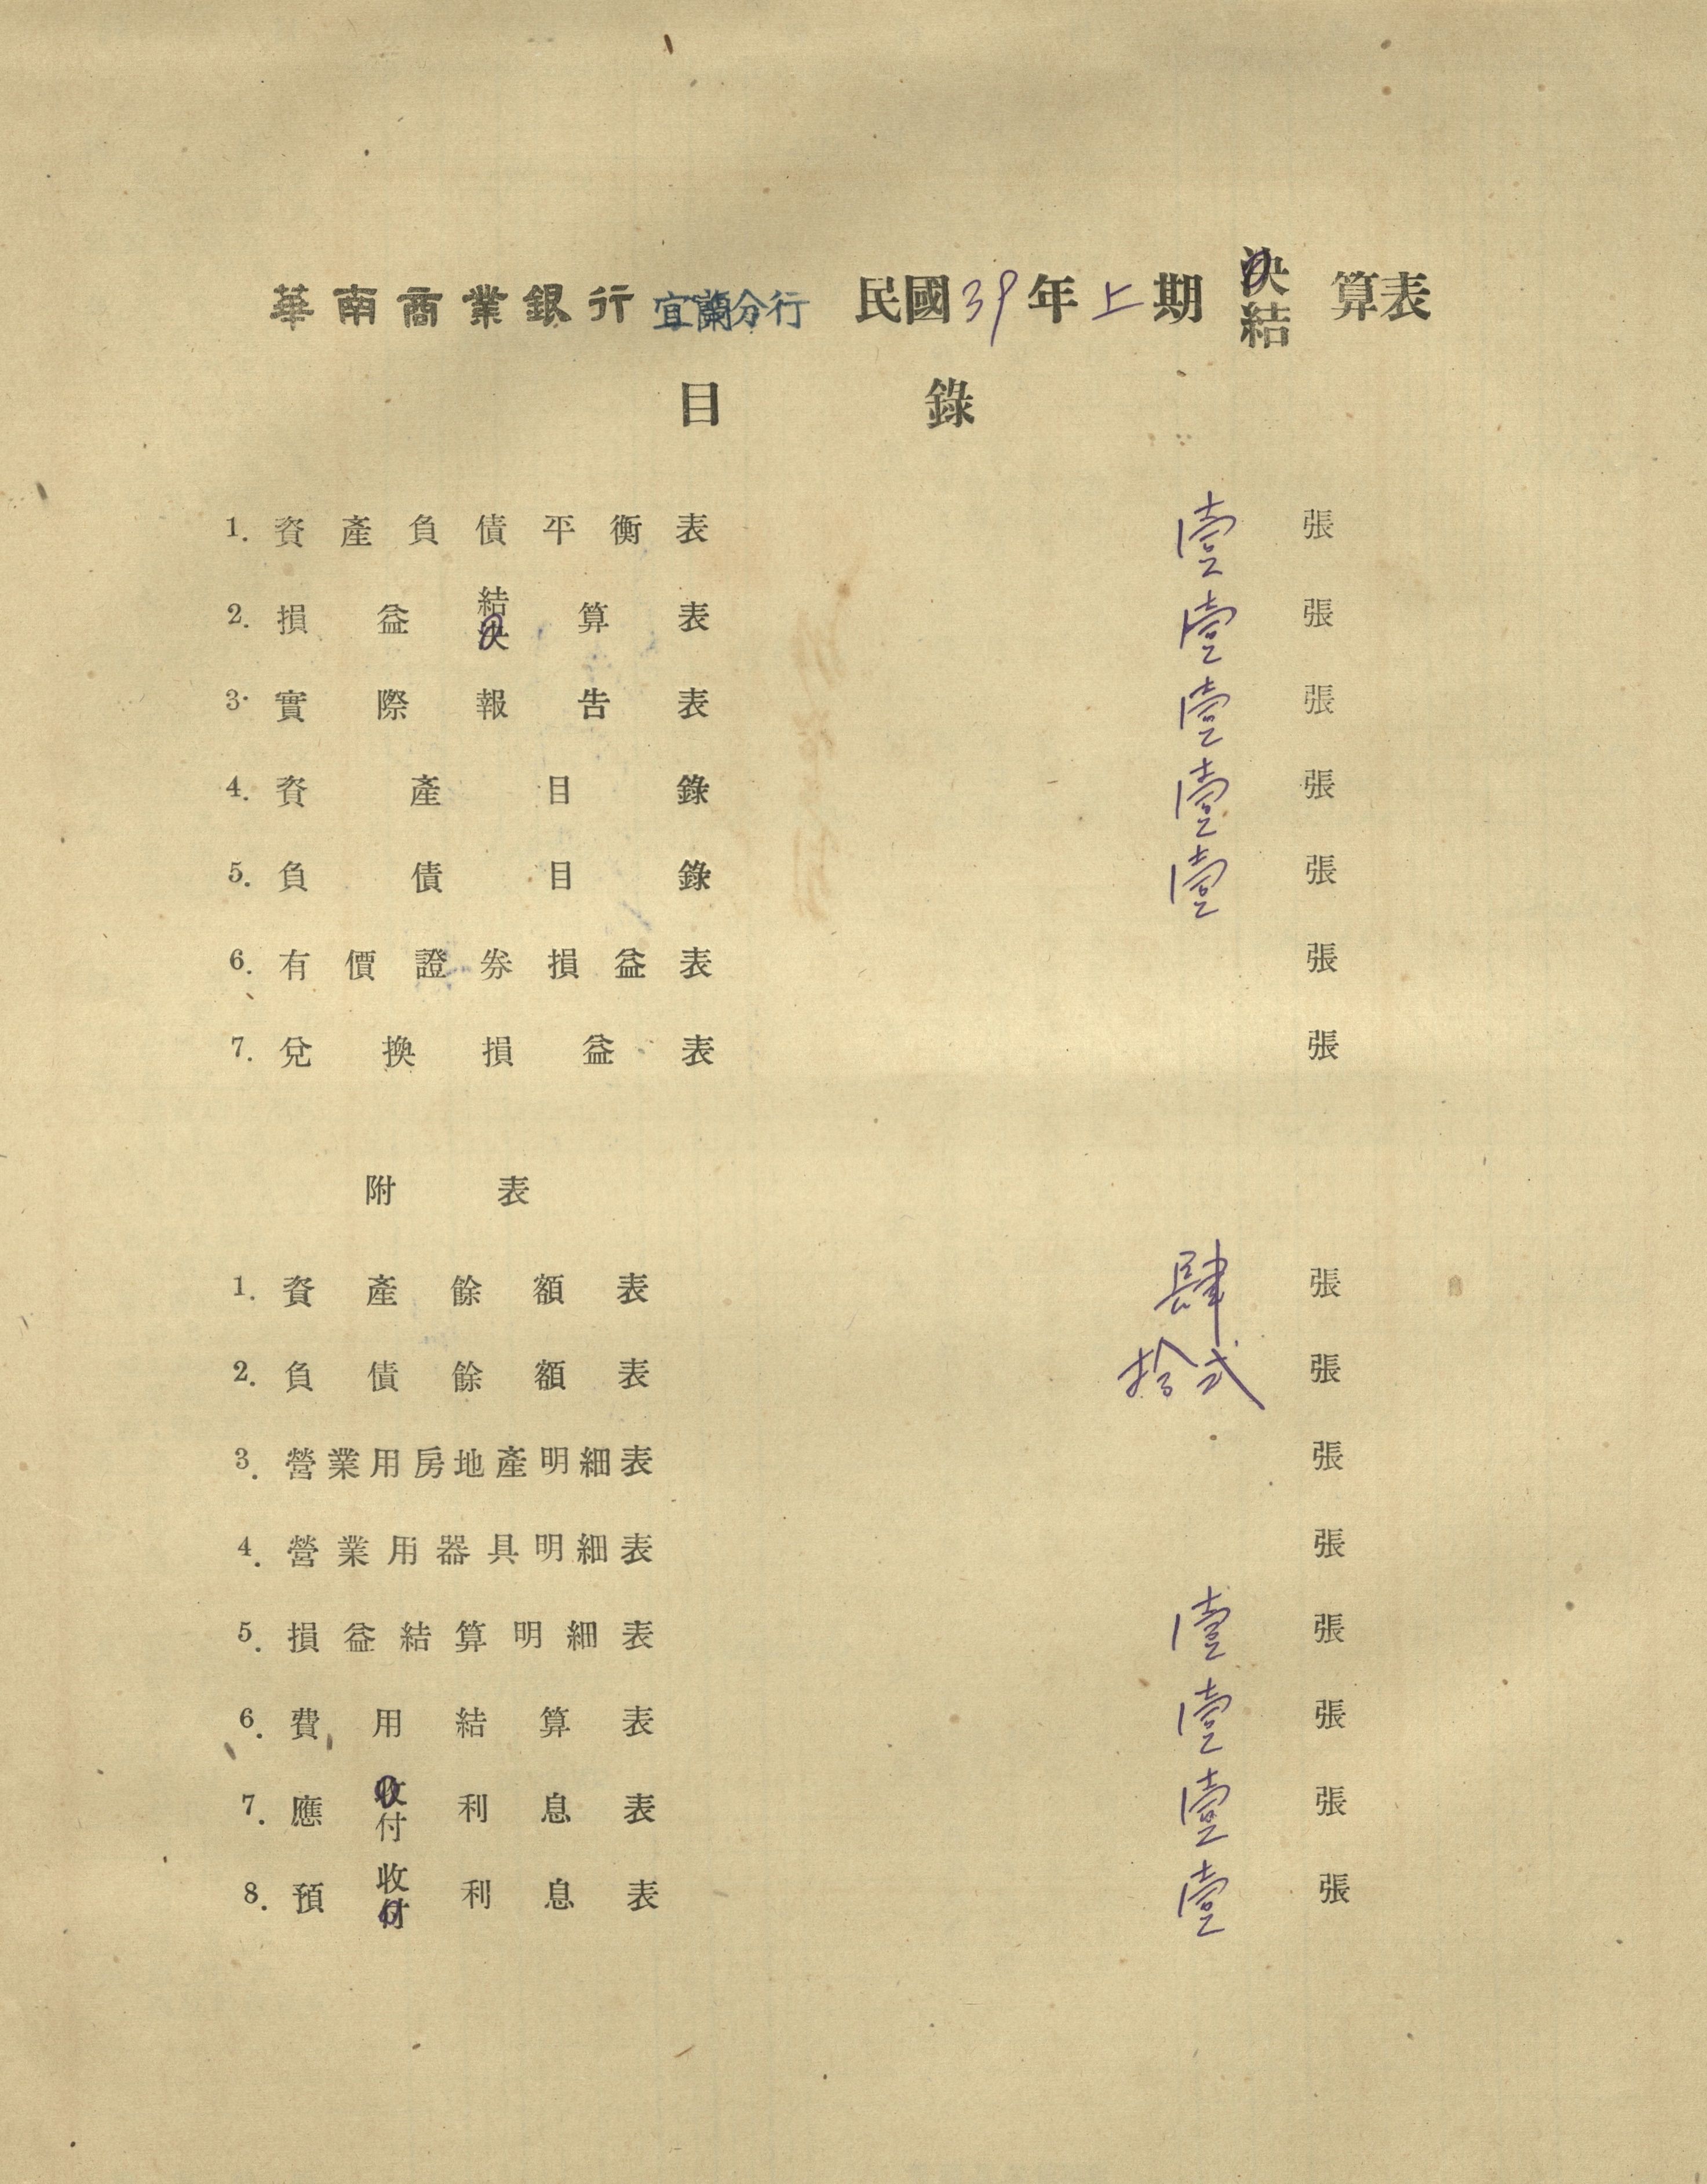 華南商業銀行宜蘭分行 民國39年上期 決結 算表
目錄
1. 資產負債平衡表 壹張
2. 損益結決算表 壹張
3. 實際報告表 壹張
4. 資產目錄 壹張
5. 負債目錄 壹張
6. 有價證券損益表 張
7. 兌換損益表 張
附表
1. 資產餘額表 肆張
2. 負債餘額表 拾弍張
3. 營業用房地產明細表 張
4. 營業用器具明細表 張
5. 損益結算明細表 壹張
6. 費用結算表 壹張
7. 應收付利息表 壹張
8. 預收付利息表 壹張